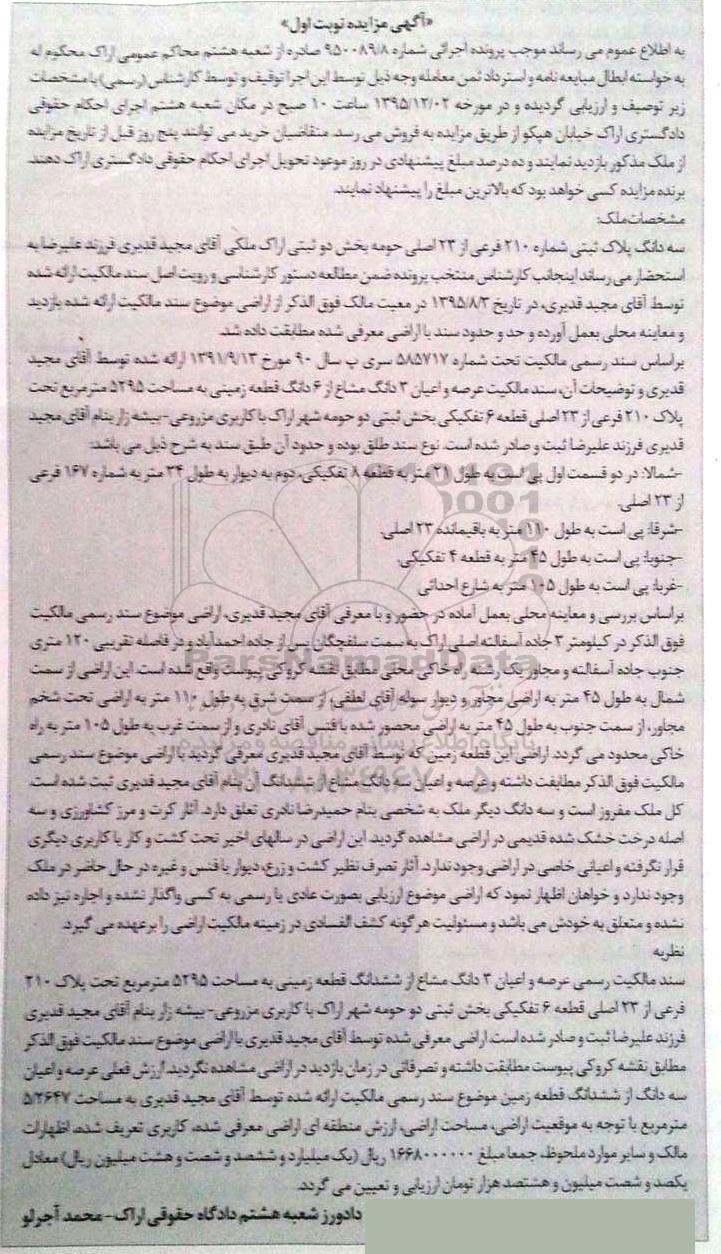 «آگهی مزایده نوبت اول»
به اطلاع عموم می رساند موجب پرونده اجرائی شماره ۹۵۰۰۸۹/۸ صادره از شعبه هشتم محاکم عمومی اراک محکوم له
به خواسته ابطال مبایعه نامه و استرداد ثمن معامله وجه ذیل توسط این اجرا توقیف و توسط کارشناس (رسمی) با مشخصات
زیر توصیف و ارزیابی گردیده و در مورخه ۱۳۹۵/۱۲/۰۲ ساعت ۱۰ صبح در مکان شعبه هشتم اجرای احکام حقوقی
دادگستری اراک خیابان هپکو از طریق مزایده به فروش می رسد. متقاضیان خرید می توانند پنج روز قبل از تاریخ مزایده
از ملک مذکور بازدید نمایند و ده درصد مبلغ پیشنهادی در روز موعود تحویل اجرای احکام حقوقی دادگستری اراک دهند.
برنده مزایده کسی خواهد بود که بالاترین مبلغ را پیشنهاد نمایند.
مشخصات ملک:
سه دانگ پلاک ثبتی شماره ۲۱۰ فرعی از ۲۳ اصلی حومه بخش دو ثبتی اراک ملکی آقای مجید قدیری فرزند علیرضا به
استحضار می رساند اینجانب کارشناس منتخب پرونده ضمن مطالعه دستور کارشناسی و رویت اصل سند مالکیت ارائه شده
توسط آقای مجید قدیری، در تاریخ ۱۳۹۵/۸/۳ در معیت مالک فوق الذکر از اراضی موضوع سند مالکیت ارائه شده بازدید
و معاینه محلی بعمل آورده و حد و حدود سند با اراضی معرفی شده مطابقت داده شد.
براساس سند رسمی مالکیت تحت شماره ۵۸۵۷۱۷ سری پ سال ۹۰ مورخ ۱۳۹۱/۹/۱۳ ارائه شده توسط آقای مجید
قدیری و توضیحات آن، سند مالکیت عرصه و اعیان ۳ دانگ مشاع از ۶ دانگ قطعه زمینی به مساحت ۵۲۹۵ مترمربع تحت
پلاک ۲۱۰ فرعی از ۲۳ اصلی قطعه ۶ تفکیکی بخش ثبتی دو حومه شهر اراک با کاربری مزروعی-بیشه زار بنام آقای مجید
قدیری فرزند علیرضا ثبت و صادر شده است. نوع سند طلق بوده و حدود آن طبق سند به شرح ذیل می باشد:
-شمالا: در دو قسمت اول پی است به طول ۲۱ متر به قطعه ۸ تفکیکی، دوم به دیوار به طول ۲۴ متر به شماره ۱۶۷ فرعی
از ۲۳ اصلی.
-شرقا: پی است به طول ۱۱۰ متر به باقیمانده ۲۳ اصلی.
-جنوبا: پی است به طول ۴۵ متر به قطعه ۴ تفکیکی.
-غربا: پی است به طول ۱۰۵ متر به شارع احداثی
براساس بررسی و معاینه محلی بعمل آماده در حضور و با معرفی آقای مجید قدیری، اراضی موضوع سند رسمی مالکیت
فوق الذکر در کیلومتر ۳ جاده آسفالته اصلی اراک به سمت سلفچگان پس از جاده احمدآباد و در فاصله تقریبی ۱۲۰ متری
جنوب جاده آسفالته و مجاور یک رشته راه خاکی محلی مطابق نقشه کروکی پیوست واقع شده است. این اراضی از سمت
شمال به طول ۴۵ متر به اراضی مجاور و دیوار سوله آقای لطفی، از سمت شرق به طول ۱۱۰ متر به اراضی تحت شخم
مجاور، از سمت جنوب به طول ۴۵ متر به اراضی محصور شده با فنس آقای نادری و از سمت غرب به طول ۱۰۵ متر به راه
خاکی محدود می گردد. اراضی این قطعه زمین که توسط آقای مجید قدیری معرفی گردید با اراضی موضوع سند رسمی
مالکیت فوق الذکر مطابقت داشته و عرصه و اعیان سه دانگ مشاع از ششدانگ آن بنام آقای مجید قدیری ثبت شده است.
کل ملک مفروز است و سه دانگ دیگر ملک به شخصی بنام حمیدرضا نادری تعلق دارد. آثار کرت و مرز کشاورزی و سه
اصله درخت خشک شده قدیمی در اراضی مشاهده گردید. این اراضی در سالهای اخیر تحت کشت و کار یا کاربری دیگری
قرار نگرفته و اعیانی خاصی در اراضی وجود ندارد. آثار تصرف نظیر کشت و زرع، دیوار یا فنس و غیره در حال حاضر در ملک
وجود ندارد و خواهان اظهار نمود که اراضی موضوع ارزیابی بصورت عادی یا رسمی به کسی واگذار نشده و اجاره نیز داده
نشده و متعلق به خودش می باشد و مسئولیت هرگونه کشف الفسادی در زمینه مالکیت اراضی را برعهده می گیرد.
نظریه
سند مالکیت رسمی عرصه و اعیان ۳ دانگ مشاع از ششدانگ قطعه زمینی به مساحت ۵۲۹۵ مترمربع تحت پلاک ۲۱۰
فرعی از ۲۳ اصلی قطعه ۶ تفکیکی بخش ثبتی دو حومه شهر اراک با کاربری مزروعی- بیشه زار بنام آقای مجید قدیری
فرزند علیرضا ثبت و صادر شده است. اراضی معرفی شده توسط آقای مجید قدیری با اراضی موضوع سند مالکیت فوق الذکر
مطابق نقشه کروکی پیوست مطابقت داشته و تصرفاتی در زمان بازدید در اراضی مشاهده نگردید. ارزش فعلی عرصه و اعیان
سه دانگ از ششدانگ قطعه زمین موضوع سند رسمی مالکیت ارائه شده توسط آقای مجید قدیری به مساحت ۵/۲۶۴۷
مترمربع با توجه به موقعیت اراضی، مساحت اراضی، ارزش منطقه ای اراضی معرفی شده، کاربری تعریف شده، اظهارات
مالک و سایر موارد ملحوظ، جمعا مبلغ ۱۶۶۸۰۰۰۰۰۰ ریال (یک میلیارد و ششصد و شصت و هشت میلیون ریال) معادل
یکصد و شصت میلیون و هشتصد هزار تومان ارزیابی و تعیین می گردد.
دادورز شعبه هشتم دادگاه حقوقی اراک- محمد آجرلو
ParsNamadData